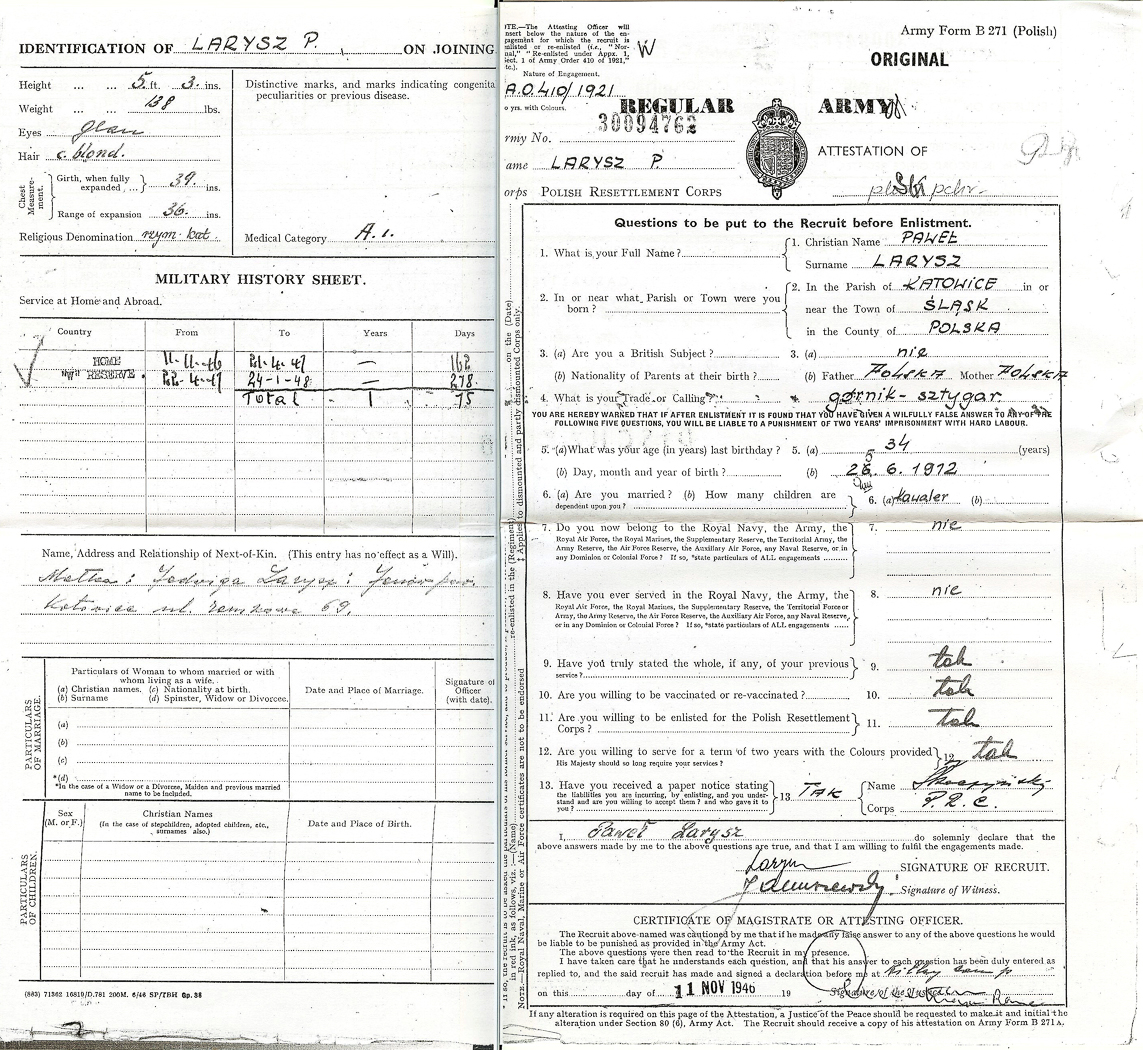 IDENTIFICATION OF LARYSZ P. ON JOINING
Height ... ... 5 ft. 3. ins.
Weight ... ... 138 lbs.
Eyes
Hair c. blond.
Chest Measurement. Girth, when fully expanded, ... 39. ins.
Range of expansion 36. ins.
Religious Denomination rzym. kat.
Distinctive marks, and marks indicating congenita
peculiarities or previous disease.
Medical Category A.1.
MILITARY HISTORY SHEET.
Service at Home and Abroad.
Country From To Years Days
HOME 11-11-46 — 162
"W" RESERVE. 24-1-48 — 278.
Total 1 75
Name, Address and Relationship of Next-of-Kin. (This entry has no effect as a Will).
Matka: Jadwiga Larysz:
69.
PARTICULARS OF MARRIAGE.
Particulars of Woman to whom married or with
whom living as a wife.
(a) Christian names. (c) Nationality at birth.
(b) Surname (d) Spinster, Widow or Divorcee.
Date and Place of Marriage.
Signature of
Officer
(with date).
(a)
(b)
(c)
*(d)
*In the case of a Widow or a Divorcee, Maiden and previous married
name to be included.
PARTICULARS OF CHILDREN.
Sex
(M. or F.)
Christian Names
(In the case of stepchildren, adopted children, etc.,
surnames also.)
Date and Place of Birth.
(883) 71362 16819/D.781 200M. 6/46 SP/TBH Gp.38
TE.—The Attesting Officer will
nsert below the nature of the en-
gagement for which the recruit is
nlisted or re-enlisted (i.e., "Nor-
nal," "Re-enlisted under Appx. 1,
iect. 1 of Army Order 410 of 1921,"
tc.).
W
Nature of Engagement.
A.O.410/1921
o yrs. with Colours.
Army Form B 271 (Polish)
ORIGINAL
REGULAR ARMY
rmy No. 30094762
ame LARYSZ P.
orps POLISH RESETTLEMENT CORPS
ATTESTATION OF
Questions to be put to the Recruit before Enlistment.
1. What is your Full Name?
1. Christian Name PAWEŁ
Surname LARYSZ
2. In or near what Parish or Town were you
born?
2. In the Parish of KATOWICE in or
near the Town of ŚLĄSK
in the County of POLSKA
3. (a) Are you a British Subject? 3. (a) nie
(b) Nationality of Parents at their birth? (b) Father POLSKA Mother POLSKA
4. What is your Trade or Calling? górnik - sztygar
YOU ARE HEREBY WARNED THAT IF AFTER ENLISTMENT IT IS FOUND THAT YOU HAVE GIVEN A WILFULLY FALSE ANSWER TO ANY OF THE
FOLLOWING FIVE QUESTIONS, YOU WILL BE LIABLE TO A PUNISHMENT OF TWO YEARS' IMPRISONMENT WITH HARD LABOUR.
5. (a) What was your age (in years) last birthday? 5. (a) 34 (years)
(b) Day, month and year of birth? (b) 25. 6. 1912
6. (a) Are you married? (b) How many children are
dependent upon you?
6. (a) Kawaler (b)
7. Do you now belong to the Royal Navy, the Army, the
Royal Air Force, the Royal Marines, the Supplementary Reserve, the Territorial Army, the
Army Reserve, the Air Force Reserve, the Auxiliary Air Force, any Naval Reserve, or in
any Dominion or Colonial Force? If so, *state particulars of all engagements
7. nie
8. Have you ever served in the Royal Navy, the Army, the
Royal Air Force, the Royal Marines, the Supplementary Reserve, the Territorial Force or
Army, the Army Reserve, the Air Force Reserve, the Auxiliary Air Force, any Naval Reserve,
or in any Dominion or Colonial Force? If so, *state particulars of ALL engagements
8. nie
9. Have you truly stated the whole, if any, of your previous
service?
9. tak
10. Are you willing to be vaccinated or re-vaccinated? 10. tak
11. Are you willing to be enlisted for the Polish Resettlement
Corps?
11. tak
12. Are you willing to serve for a term of two years with the Colours provided
His Majesty should so long require your services?
12. tak
13. Have you received a paper notice stating
the liabilities you are incurring, by enlisting, and you under-
stand and are you willing to accept them? and who gave it to
you?
13 TAK
Name
Corps P.R.C.
I, Paweł Larysz do solemnly declare that the
above answers made by me to the above questions are true, and that I am willing to fulfil the engagements made.
Larysz SIGNATURE OF RECRUIT.
Signature of Witness.
CERTIFICATE OF MAGISTRATE OR ATTESTING OFFICER.
The Recruit above-named was cautioned by me that if he made any false answer to any of the above questions he would
be liable to be punished as provided in the Army Act.
The above questions were then read to the Recruit in my presence.
I have taken care that he understands each question, and that his answer to each question has been duly entered as
replied to, and the said recruit has made and signed a declaration before me at
on this day of 11 NOV 1946 19 Signature of the Justice
If any alteration is required on this page of the Attestation, a Justice of the Peace should be requested to make it and initial the
alteration under Section 80 (6), Army Act. The Recruit should receive a copy of his attestation on Army Form B 271A.